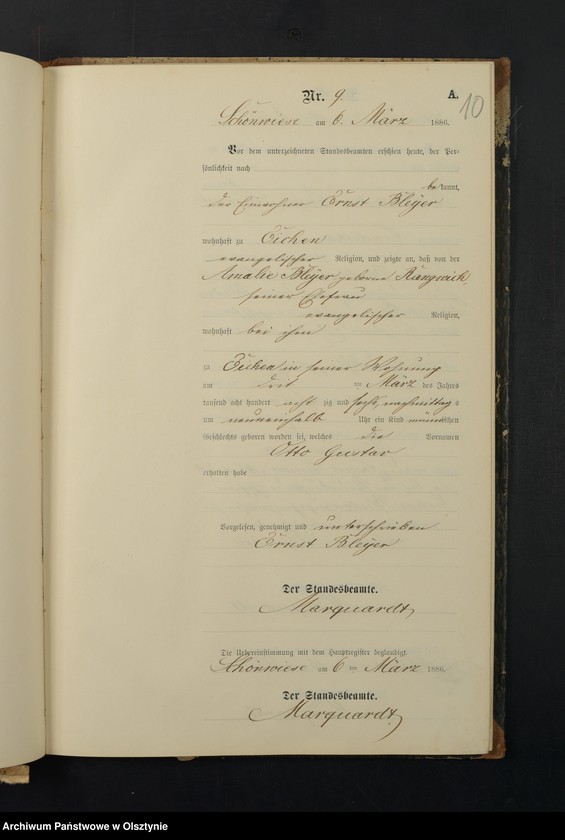 Nr. 9.
A.
10
Schönwiese am 6. März 1886.
Vor dem unterzeichneten Standesbeamten erschien heute, der Per-
sönlichkeit nach
bekannt,
der Einwohner Ernst Bleyer
wohnhaft zu Eichen
evangelischer Religion, und zeigte an, daß von der
Amalie Bleyer geborne Rangwich,
seiner Ehefrau
evangelischer Religion,
wohnhaft bei ihm
zu Eichen in seiner Wohnung
am drei ten März des Jahres
tausend acht hundert acht zig und sechs, nachmittags
um neuneinhalb Uhr ein Kind männlichen
Geschlechts geboren worden sei, welches die Vornamen
Otto Gustav
erhalten habe
Vorgelesen, genehmigt und unterschrieben
Ernst Bleyer
Der Standesbeamte.
Marquardt
Die Uebereinstimmung mit dem Hauptregister beglaubigt.
Schönwiese am 6 ten März 1886.
Der Standesbeamte.
Marquardt
Archiwum Państwowe w Olsztynie